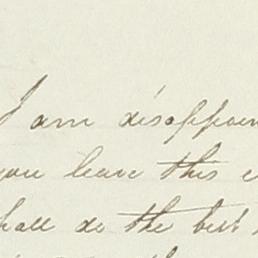 I am disappoin
you leave this e
hall do the best